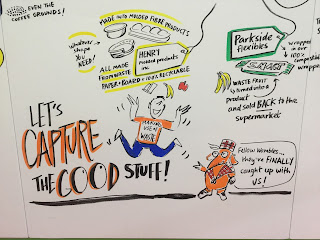 EVEN THE
COFFEE GROUNDS!
MADE into MOLDED FIBRE PRODUCTS
Whatever
shape
YOU
NEED!
HENRY
Molded products
inc.
ALL MADE
FROM WASTE
PAPER + BOARD + 100% RECYCLABLE
Parkside
flexibles
wrapped
in our
100%
compostable
wrapper
WASTE FRUIT
is turned into a
product
and sold BACK to the
supermarkets
LET'S
CAPTURE
THE GOOD STUFF!
MAKING
NEW
WASTE
Fellow Wombles...
they're FINALLY
caught up with
US!